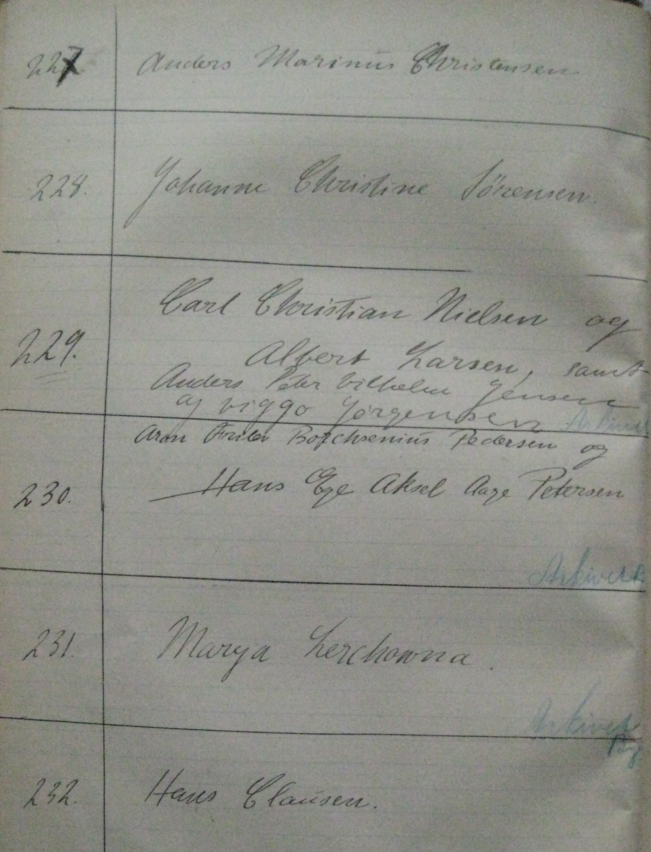 227 Anders Marinus Christensen
228. Johanne Christine Sørensen.
Carl Christian Nielsen og
229. Albert Larsen, samt
Anders Peter Vilhelm Jensen
og Viggo Jørgensen
Aron Borchsenius Pedersen og
230. Hans Ege Aksel Aage Petersen
Arkivet
231. Marya Lerchowna.
Arkivet
232. Hans Clausen.